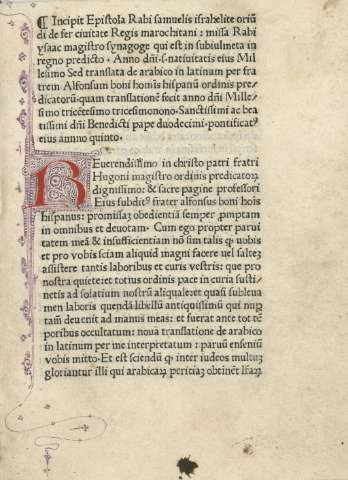 ¶ Incipit Epistola Rabi samuelis israhelite oriũ
di de fer ciuitate Regis marochitani : missa Rabi
ysaac magistro synagoge qui est in subiulmeta in
regno predicto . Anno dñi .s. natiuitatis eius Mil
lesimo Sed translata de arabico in latinum per fra
trem Alfonsum boni hoĩs hispanũ ordinis pre
dicatorũ. quam translationẽ fecit anno dñi Mille
simo tricẽtesimo tricesimonono. Sanctissimi ac bea
tissimi dñi Benedicti pape duodecimi. pontificatꝰ
eius annno quinto .
REuerendissimo in christo patri fratri
Hugoni magistro ordinis predicatoꝝ
dignissimo : & sacre pagine professori
Eius subditꝰ frater alfonsus boni hoĩs
hispanus : promissaꝫ obedientiã semper ꝓmptam
in omnibus et deuotam. Cum ego propter parui
tatem meã & insufficientiam nõ sim talis ꝙ uobis
et pro vobis sciam aliquid magni facere uel saltez
assistere tantis laboribus et curis vestris : que pro
nostra quiete: et totius ordinis pace in curia susti
netis ad solatium nostrũ aliquale: et quasi subleua
men laboris quendã libellũ antiquissimũ qui nup
tam deuenit ad manus meas : et fuerat ante tot tẽ
poribus occultatum : noua translatione de arabico
in latinum per me interpretatum : paruũ enseniũ
vobis mitto. Et est sciendũ ꝙ inter iudeos multuꝫ
gloriantur illi qui arabicaꝝ peritiaꝫ obtinẽt lr̃aꝝ